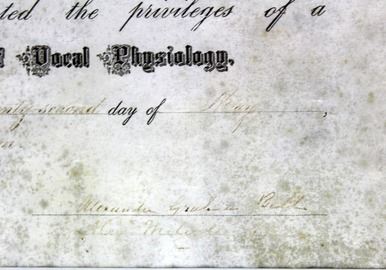 ted the privileges of a
Vocal Physiology,
second day of May,
Alexander Graham Bell